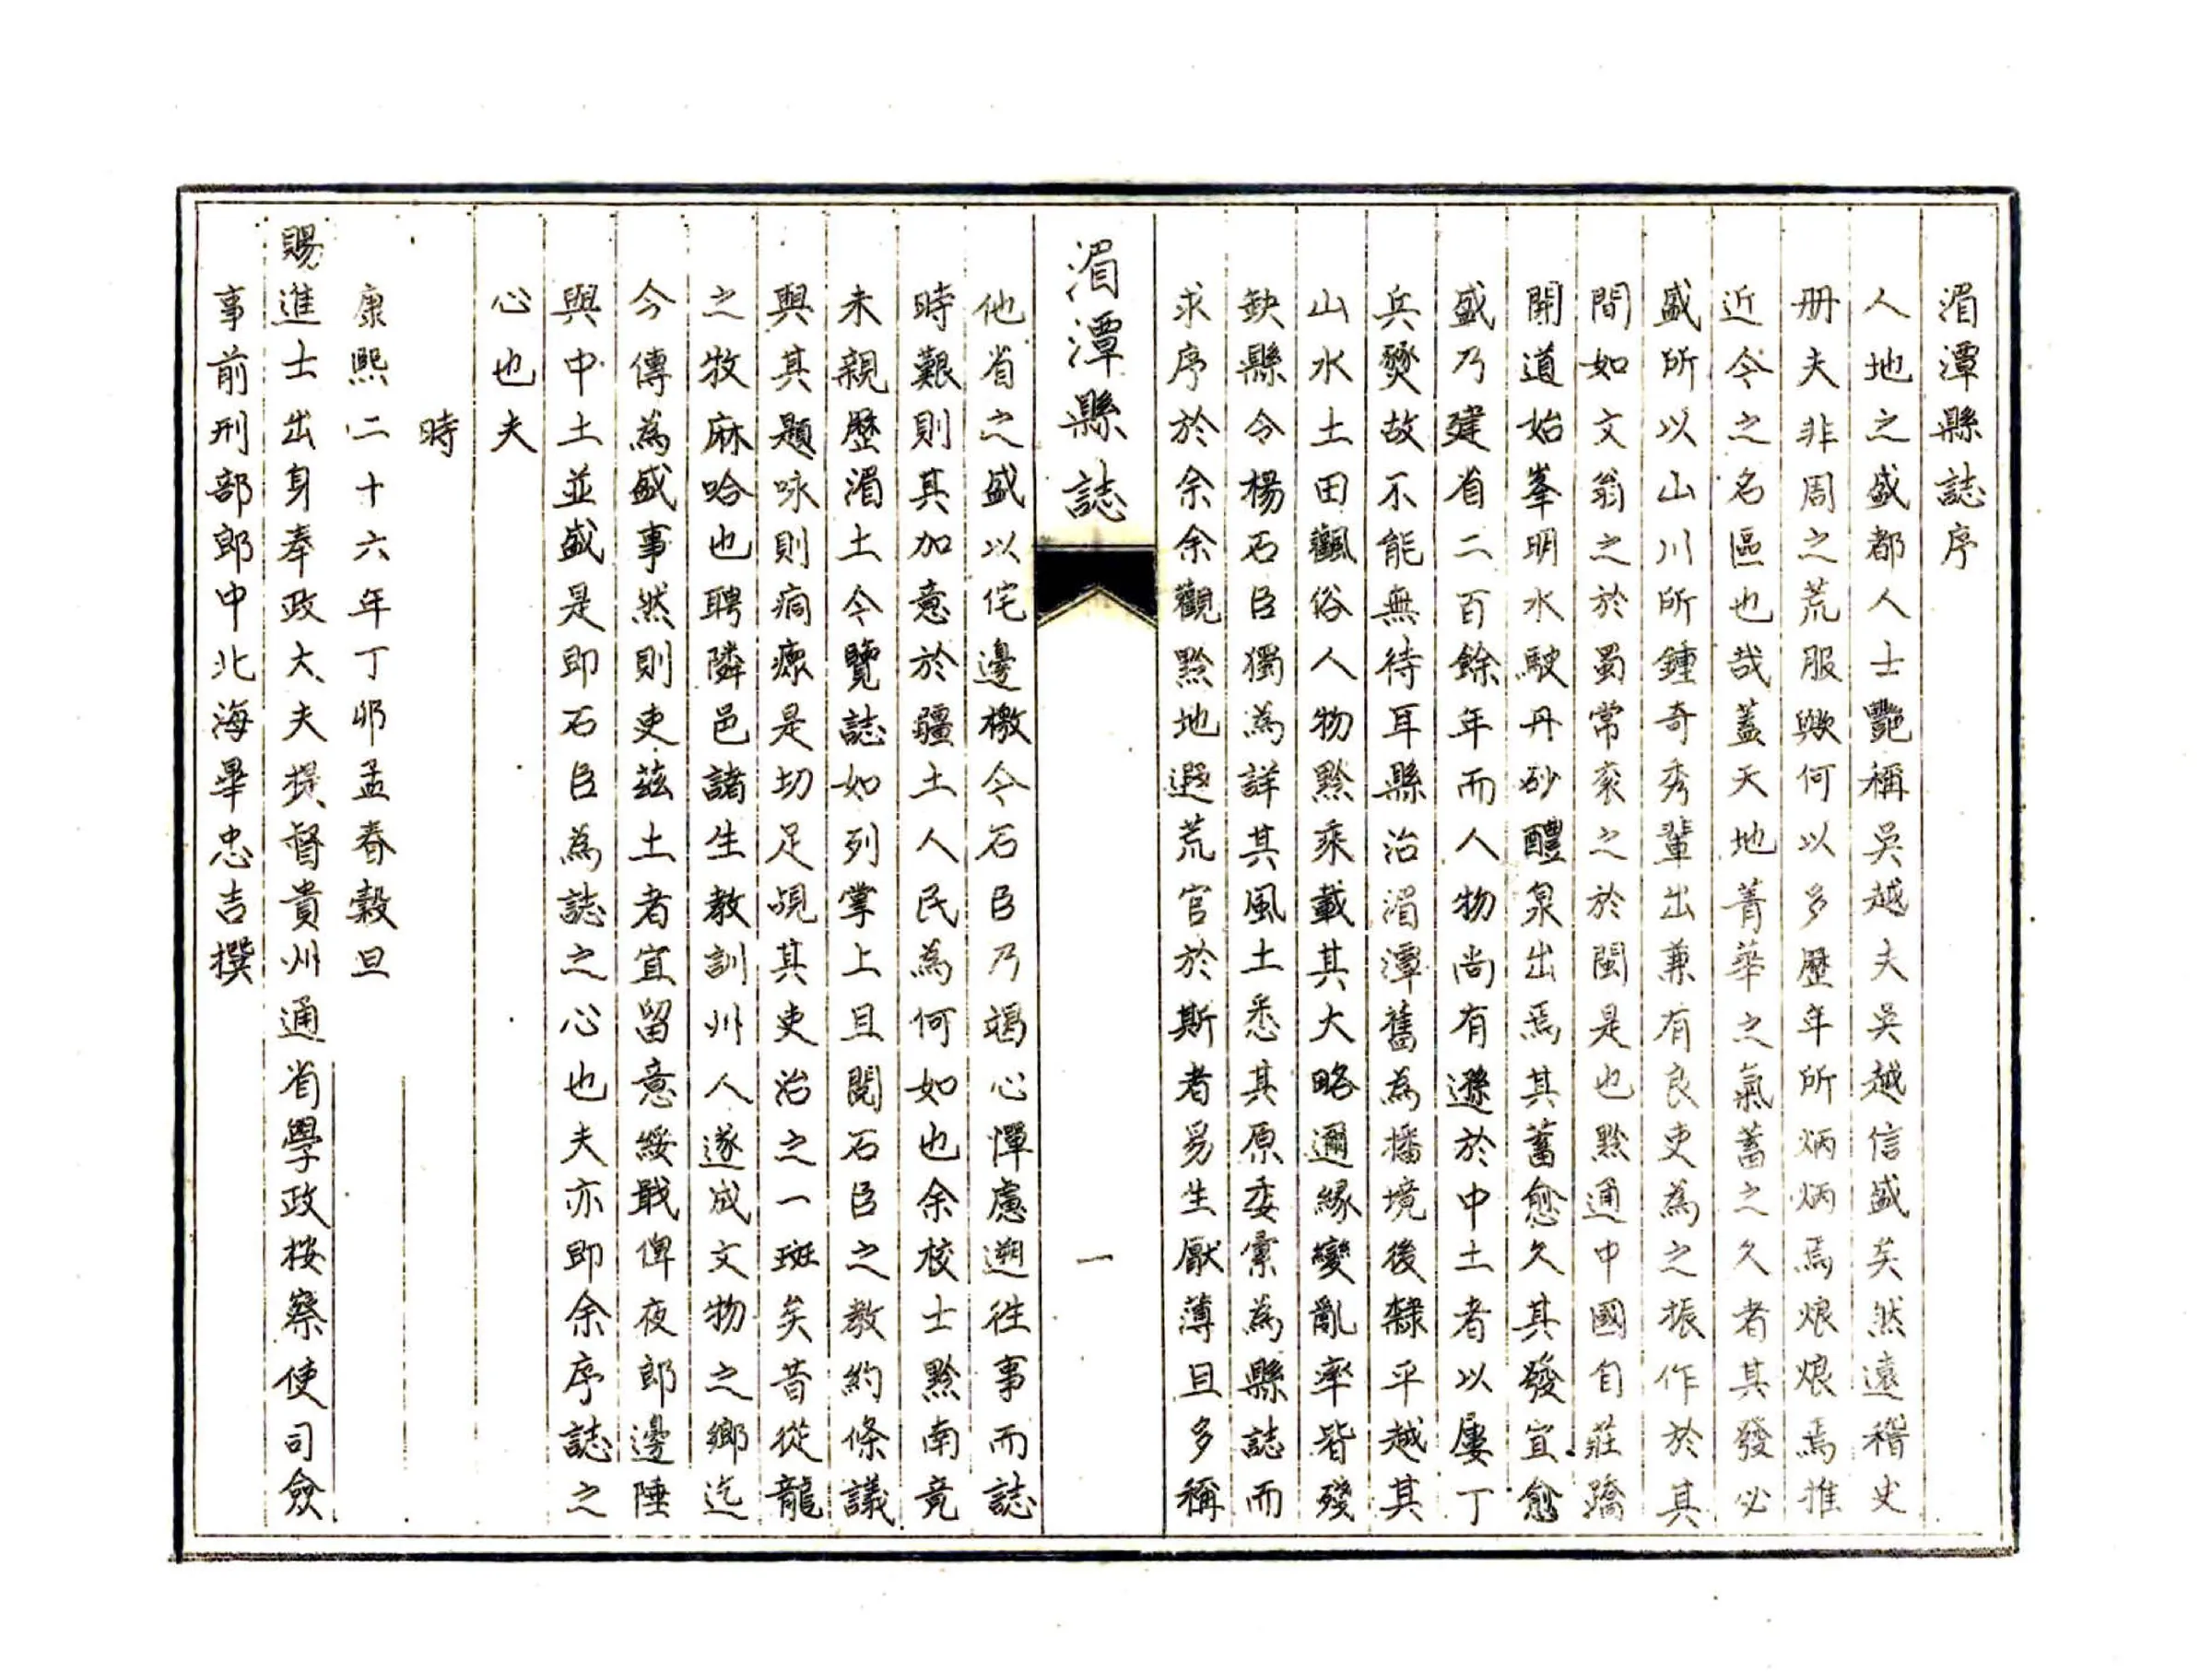 湄潭縣誌序
人地之盛都人士艷稱吳越夫吳越信盛矣然遠稽史
册夫非周之荒服歟何以多歷年所炳炳焉烺烺焉推
近今之名區也哉蓋天地菁華之氣蓄之久者其發必
盛所以山川所鍾奇秀輩出兼有良吏為之振作於其
間如文翁之於蜀常袞之於閩是也黔通中國自莊蹻
開道始峯明水駛丹砂醴泉出焉其蓄愈久其發宜愈
盛乃建省二百餘年而人物尚有遜於中土者以屢丁
兵燹故不能無待耳縣治湄潭舊為播境後隸平越其
山水土田風俗人物黔乘載其大略邇緣變亂率皆殘
缺縣令楊石臣獨為詳其風土悉其原委彙為縣誌而
求序於余余觀黔地遐荒官於斯者易生厭薄且多稱
湄潭縣誌
一
他省之盛以侘邊檄今石臣乃竭心憚慮遡往事而誌
時艱則其加意於疆土人民為何如也余校士黔南竟
未親歷湄土今覽誌如列掌上且閱石臣之教約條議
與其題咏則痌瘝是切足覘其吏治之一斑矣昔從龍
之牧麻哈也聘隣邑諸生教訓州人遂成文物之鄉迄
今傳為盛事然則吏茲土者宜留意綏戢俾夜郎邊陲
與中土並盛是即石臣為誌之心也夫亦即余序誌之
心也夫
時
康熙二十六年丁卯孟春穀旦
賜進士出身奉政大夫提督貴州通省學政按察使司僉
事前刑部郎中北海畢忠吉撰